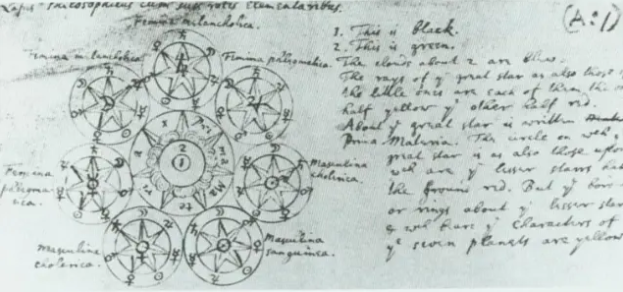 Lapis Philosophicus cum suis rotis elementaribus.
(A:1)
Femina melancholica.
Femina melancholica.
Femina phlegmatica.
Femina
phlegma-
tica.
Masculina
cholerica.
Masculina
cholerica.
Masculina
sanguinea.
1
2
1. This is black.
2. This is green.
The clouds about 2 are blue.
The rays of yᵉ great star as also those of
the little ones are each of them the one
half yellow yᵉ other half red.
About yᵉ great star is written
Prima Materia. The circle on wᶜʰ yᵉ
great star is as also those upon
wᶜʰ are yᵉ lesser starrs hath
the ground red. But yᵉ
or rings about yᵉ lesser starrs
& wᶜʰ bear yᵉ characters of
yᵉ seven planets are yellow